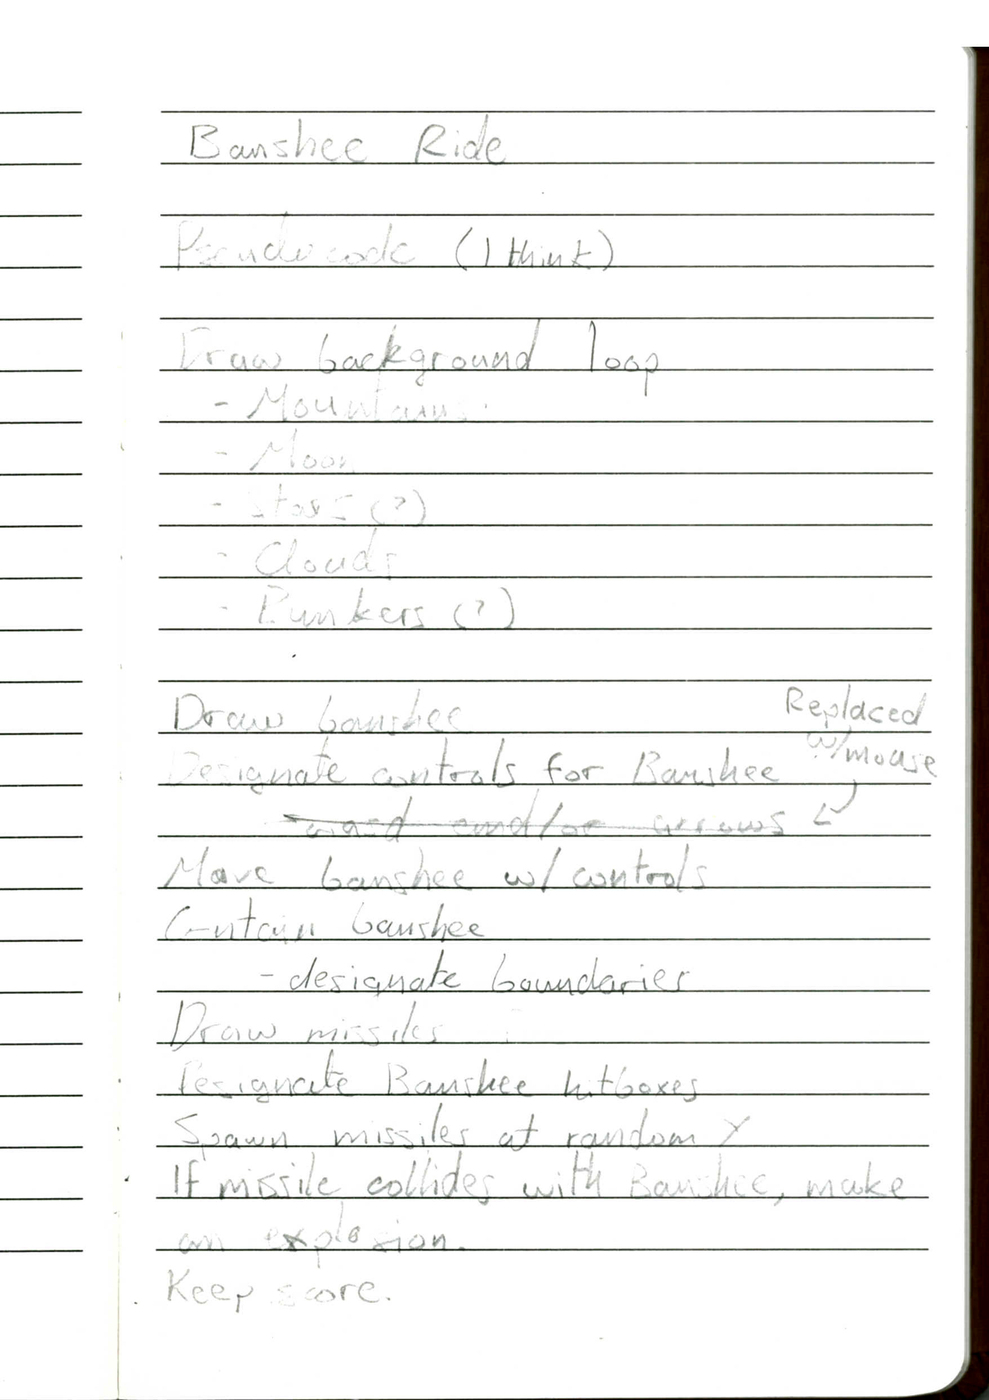 Banshee Ride
Pseudocode (I think)
Draw background loop
- Mountains
- Moon
- Stars (?)
- Clouds
- Bunkers (?)
Draw banshee
Replaced
w/mouse
Designate controls for Banshee
- wasd and/or arrows
Move banshee w/ controls
Contain banshee
- designate boundaries
Draw missiles
Designate Banshee hitboxes
Spawn missiles at random Y
If missile collides with Banshee, make
an explosion.
Keep score.